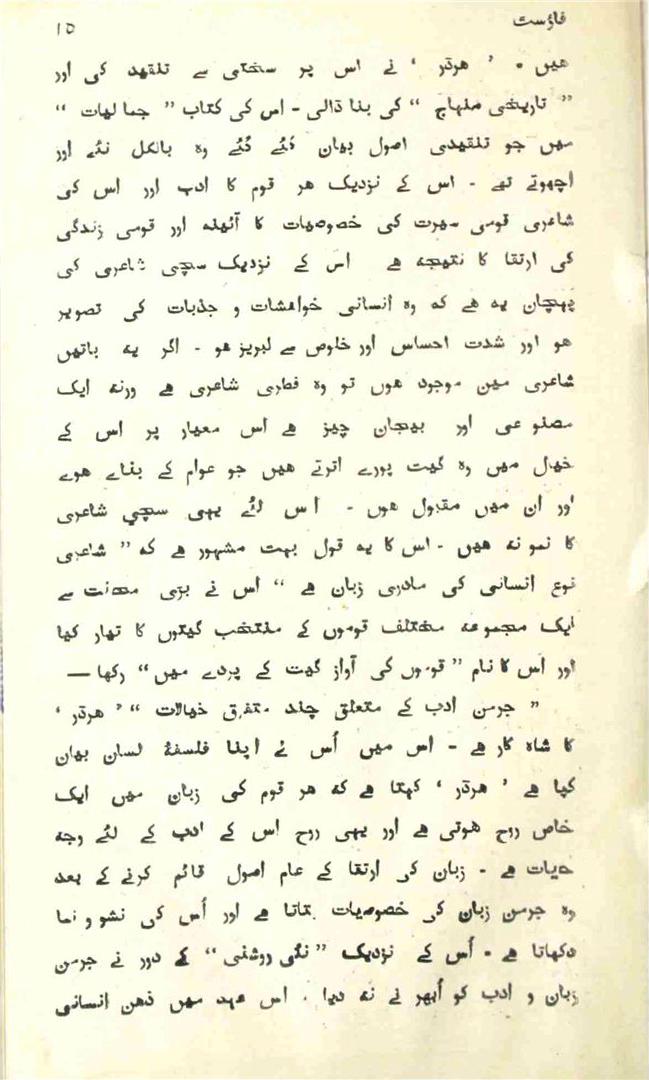 فاؤست ۱۵
ھیں ۔ ' ھرڈر ' نے اس پر سختی سے تنقید کی اور
" تاریخی منہاج " کی بنا ڈالی ۔ اس کی کتاب " جمالیات "
میں جو تنقیدی اصول بیان کئے گئے وہ بالکل نئے اور
اچھوتے تھے ۔ اس کے نزدیک ھر قوم کا ادب اور اس کی
شاعری قومی سیرت کی خصوصیات کا آئینہ اور قومی زندگی
کی ارتقا کا نتیجہ ھے اس کے نزدیک سچی شاعری کی
پہچان یہ ھے کہ وہ انسانی خواھشات و جذبات کی تصویر
ھو اور شدت احساس اور خلوص سے لبریز ھو ۔ اگر یہ باتیں
شاعری مین موجود ھوں تو وہ فطری شاعری ھے ورنہ ایک
مصنوعی اور بیجان چیز ھے اس معیار پر اس کے
خیال میں وہ گیت پورے اترتے ھیں جو عوام کے بناے ھوے
اور ان میں مقبول ھوں ۔ اس لئے یہی سچی شاعری
کا نمونہ ھیں ۔ اس کا یہ قول بہت مشہور ھے کہ " شاعری
نوع انسانی کی مادری زبان ھے " اس نے بڑی محنت سے
ایک مجموعہ مختلف قوموں کے منتخب گیتوں کا تیار کیا
اور اس کا نام " قوموں کی آواز گیت کے پردے میں " رکھا —
" جرمن ادب کے متعلق چند متفرق خیالات " ' ھرڈر '
کا شاہ کار ھے ۔ اس میں اُس نے اپنا فلسفۂ لسان بیان
کیا ھے ' ھرڈر ' کہتا ھے کہ ھر قوم کی زبان میں ایک
خاص روح ھوتی ھے اور یہی روح اس کے ادب کے لئے وجہ
حیات ھے ۔ زبان کی ارتقا کے عام اصول قائم کرنے کے بعد
وہ جرمن زبان کی خصوصیات بتاتا ھے اور اُس کی نشو و نما
دکھاتا ھے ۔ اُس کے نزدیک " نئی روشنی " کے دور نے جرمن
زبان و ادب کو اُبھر نے نہ دیا ۔ اس عہد میں ذھن انسانی